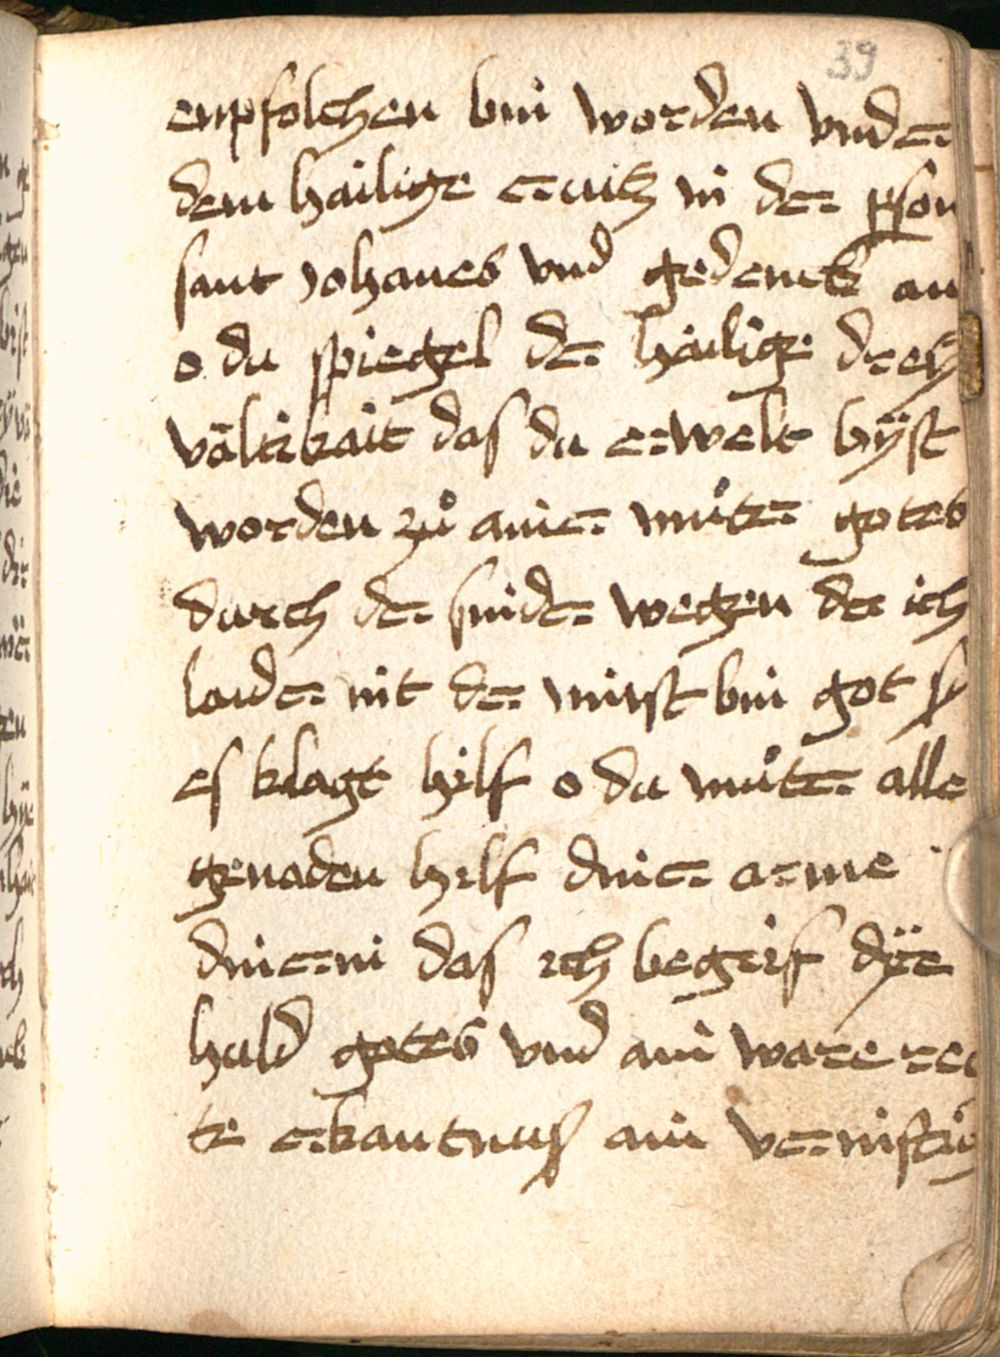 39
enpfolchen bin worden vnder
dem hailige creucz in der pson
sant Johanes vnd gedenck an
o du spiegel der hailige drey
vältikait das du erwelt byst
worden zuͦ ainer muͦter gotes
durch der sinder wegen der ich
laider nit der minst bin got sy
es klagt hilf o du muͦter alle
genaden hilf diner arme
dinerin das ich begirf dÿe
huld gotes vnd ain ware rec
te erkantnus ain